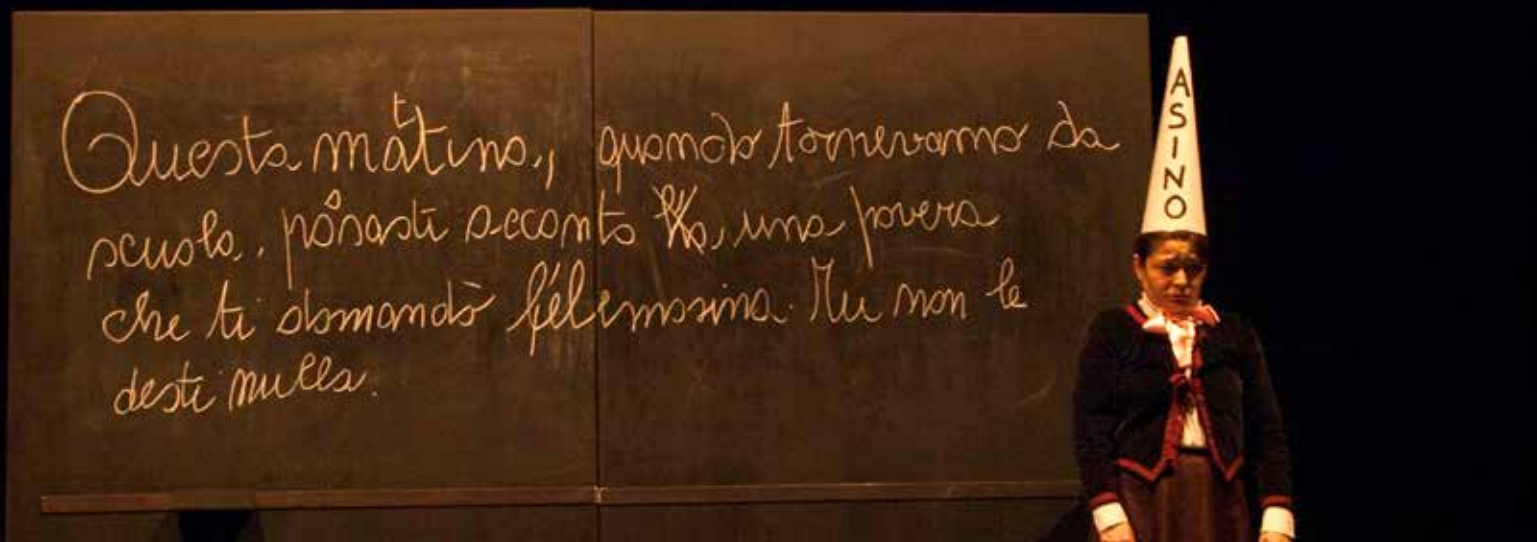 Questa mattina, quando tornevamo da
scuola, accanto a, una povera
che ti domandò l'elemosina. Tu non le
desti nulla.
ASINO